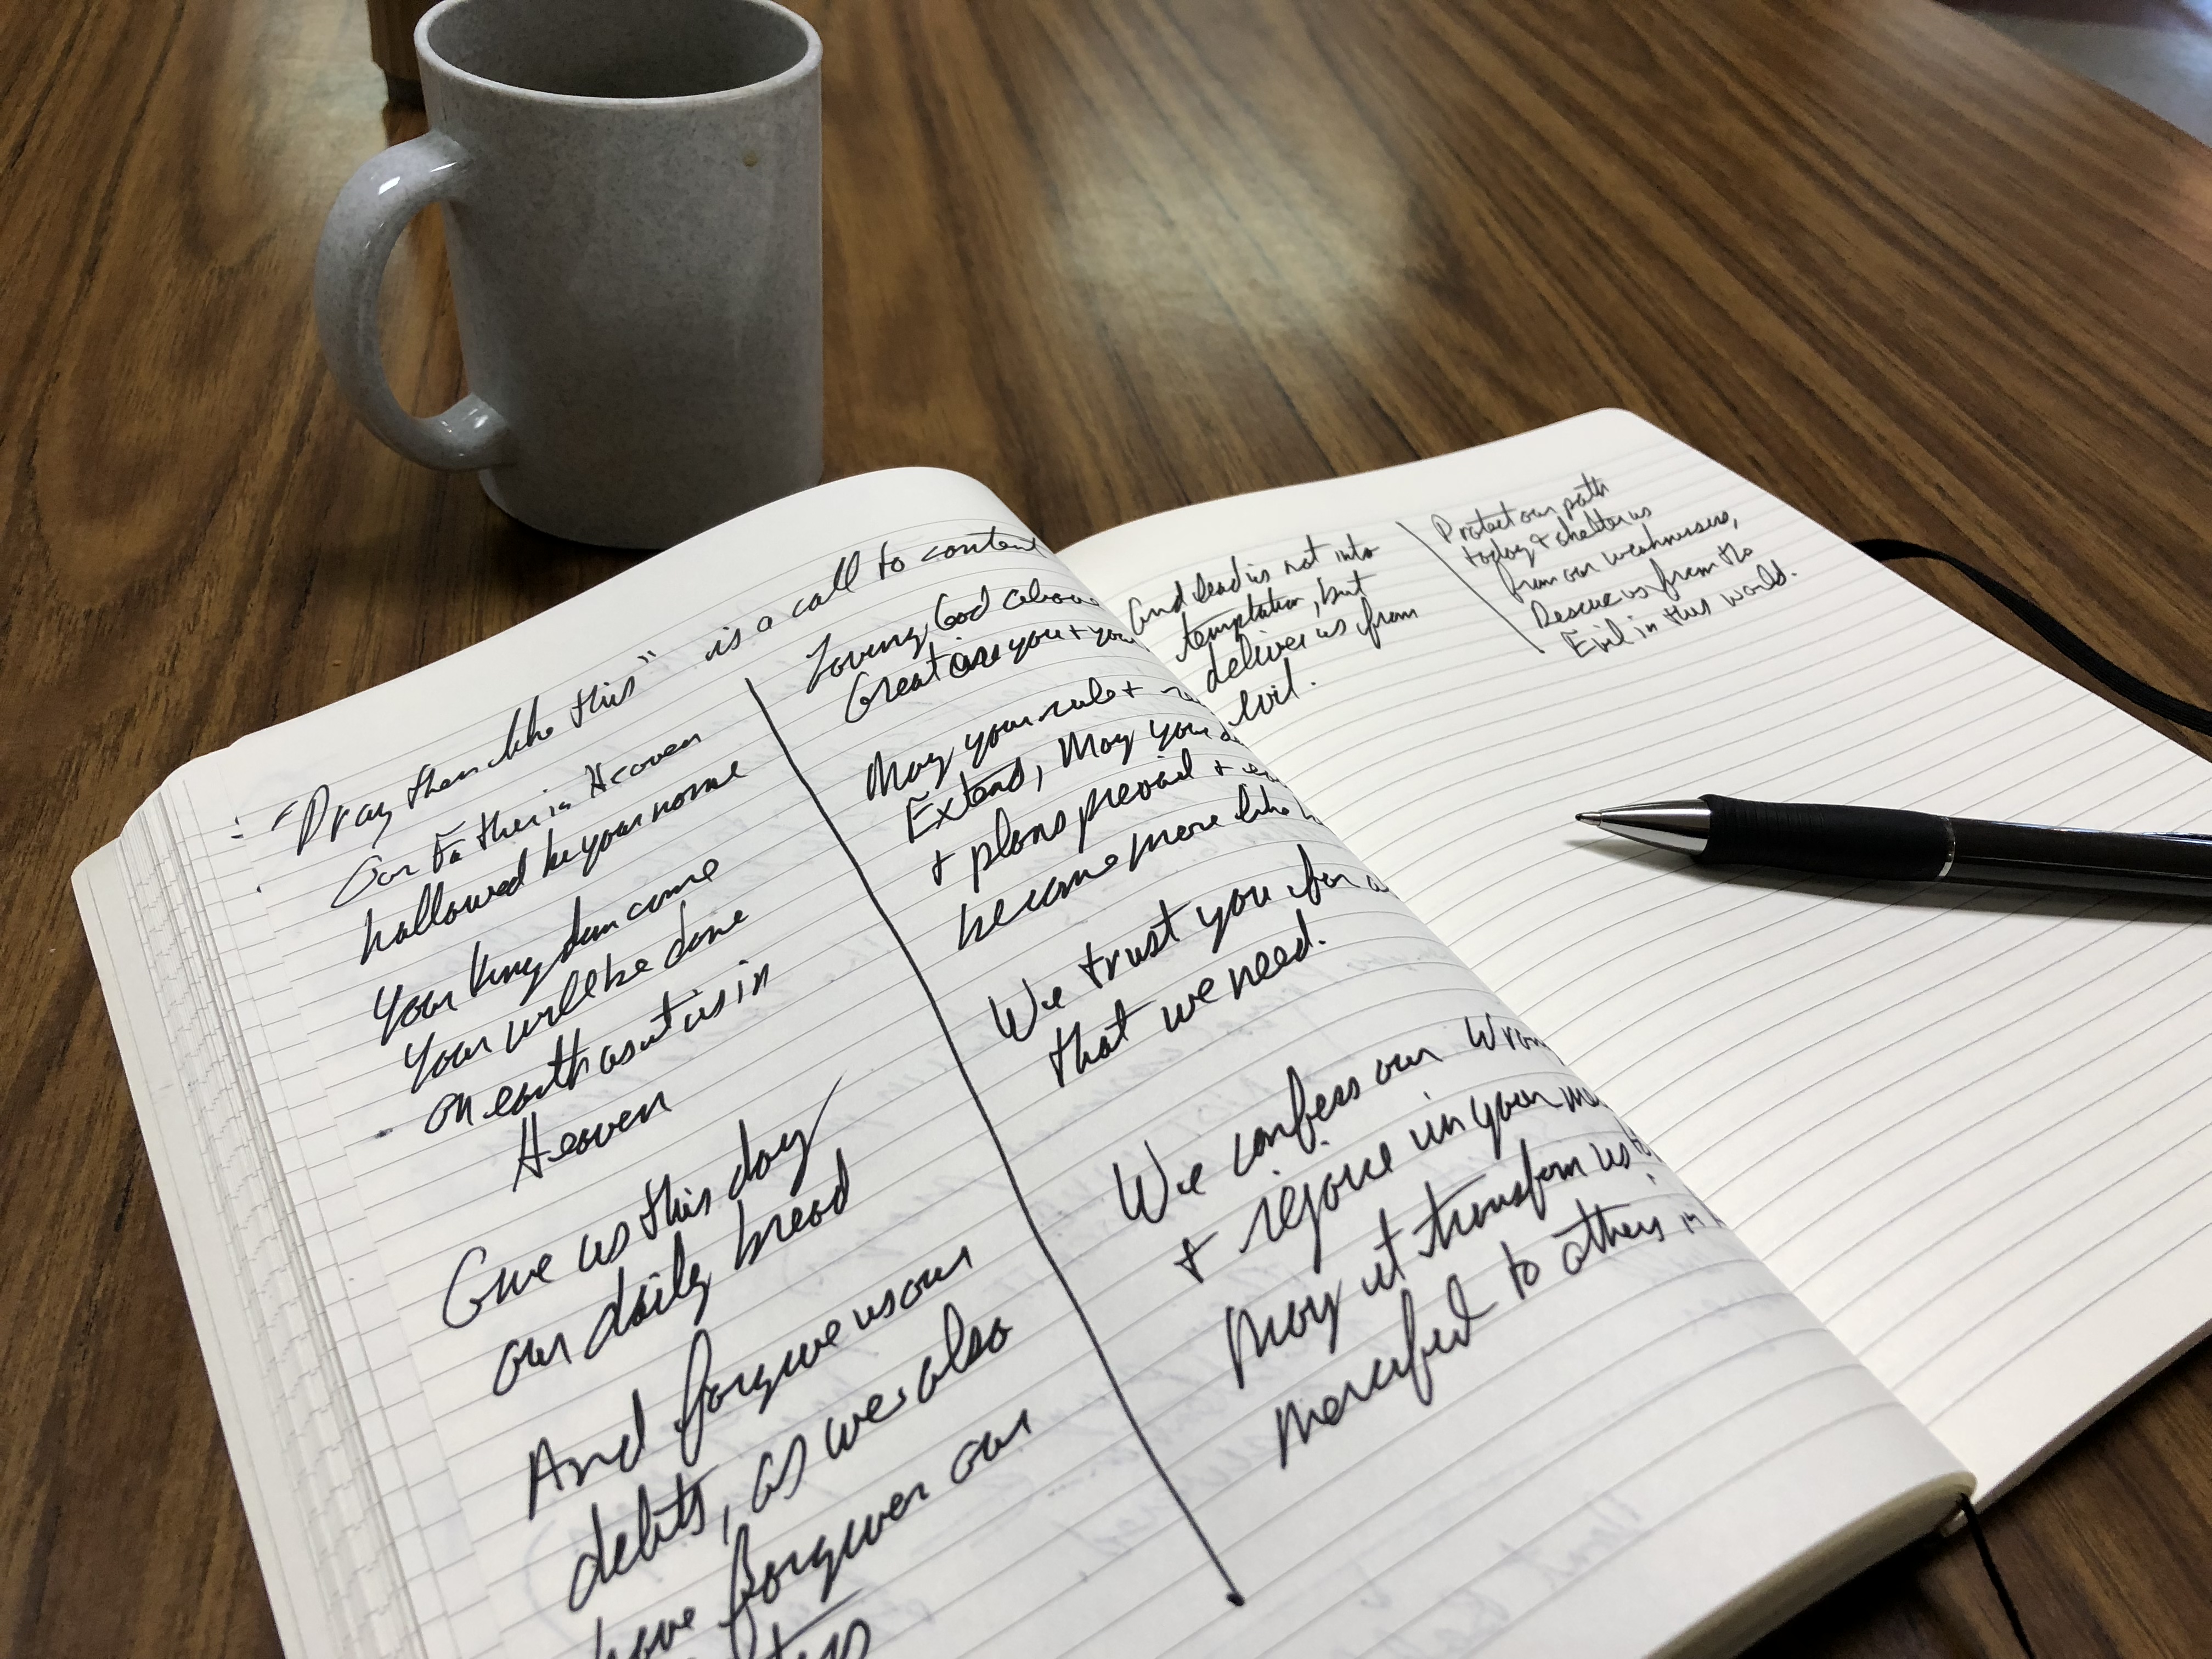 "Pray then like this" is a call to content
Our Father in Heaven
hallowed be your name
Your kingdom come
Your will be done
on earth as it is in
Heaven
Give us this day
our daily bread
And forgive us our
debts, as we also
have forgiven our
Loving God above
Great are you + you
May your rule +
Extend, May your
+ plans prevail +
become more like
We trust you for a
that we need.
We confess our wron
+ rejoice in your me
May it transform us
merciful to others in
And lead us not into
temptation, but
deliver us from
evil.
Protect our path
today + shelter us
from our weaknesses,
Rescue us from the
Evil in this world.